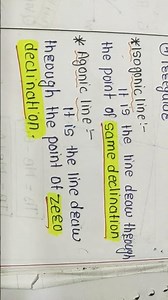 * Isogonic line :-
It is the line draw through
the point of same declination
* Agonic line :-
It is the line draw
through the point of zero
declination.